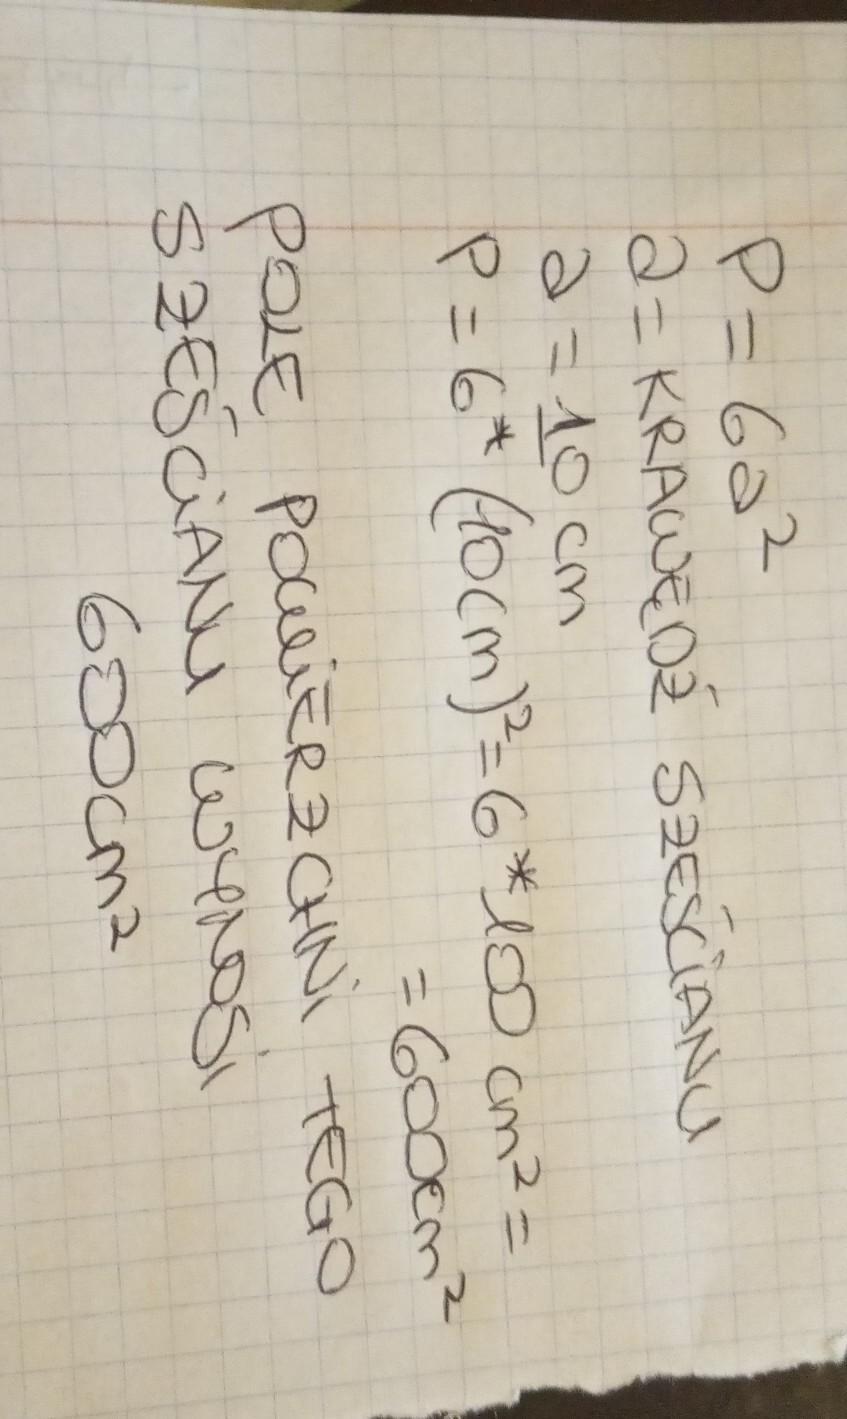 P = 6a²
a = KRAWĘDŹ SZEŚCIANU
a = 10 cm
P = 6 * (10cm)² = 6 * 100 cm² =
= 600cm²
POLE POWIERZCHNI TEGO
SZEŚCIANU WYNOSI
600cm²